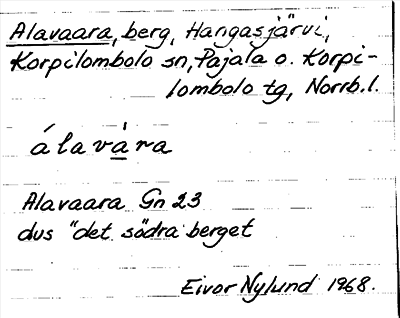 Alavaara, berg, Hangasjärvi,
Korpilombolo sn, Pajala o. Korpi-
lombolo tg, Norrb.l.
álavàra
Alavaara Gn 23
dvs "det södra berget
Eivor Nylund 1968.